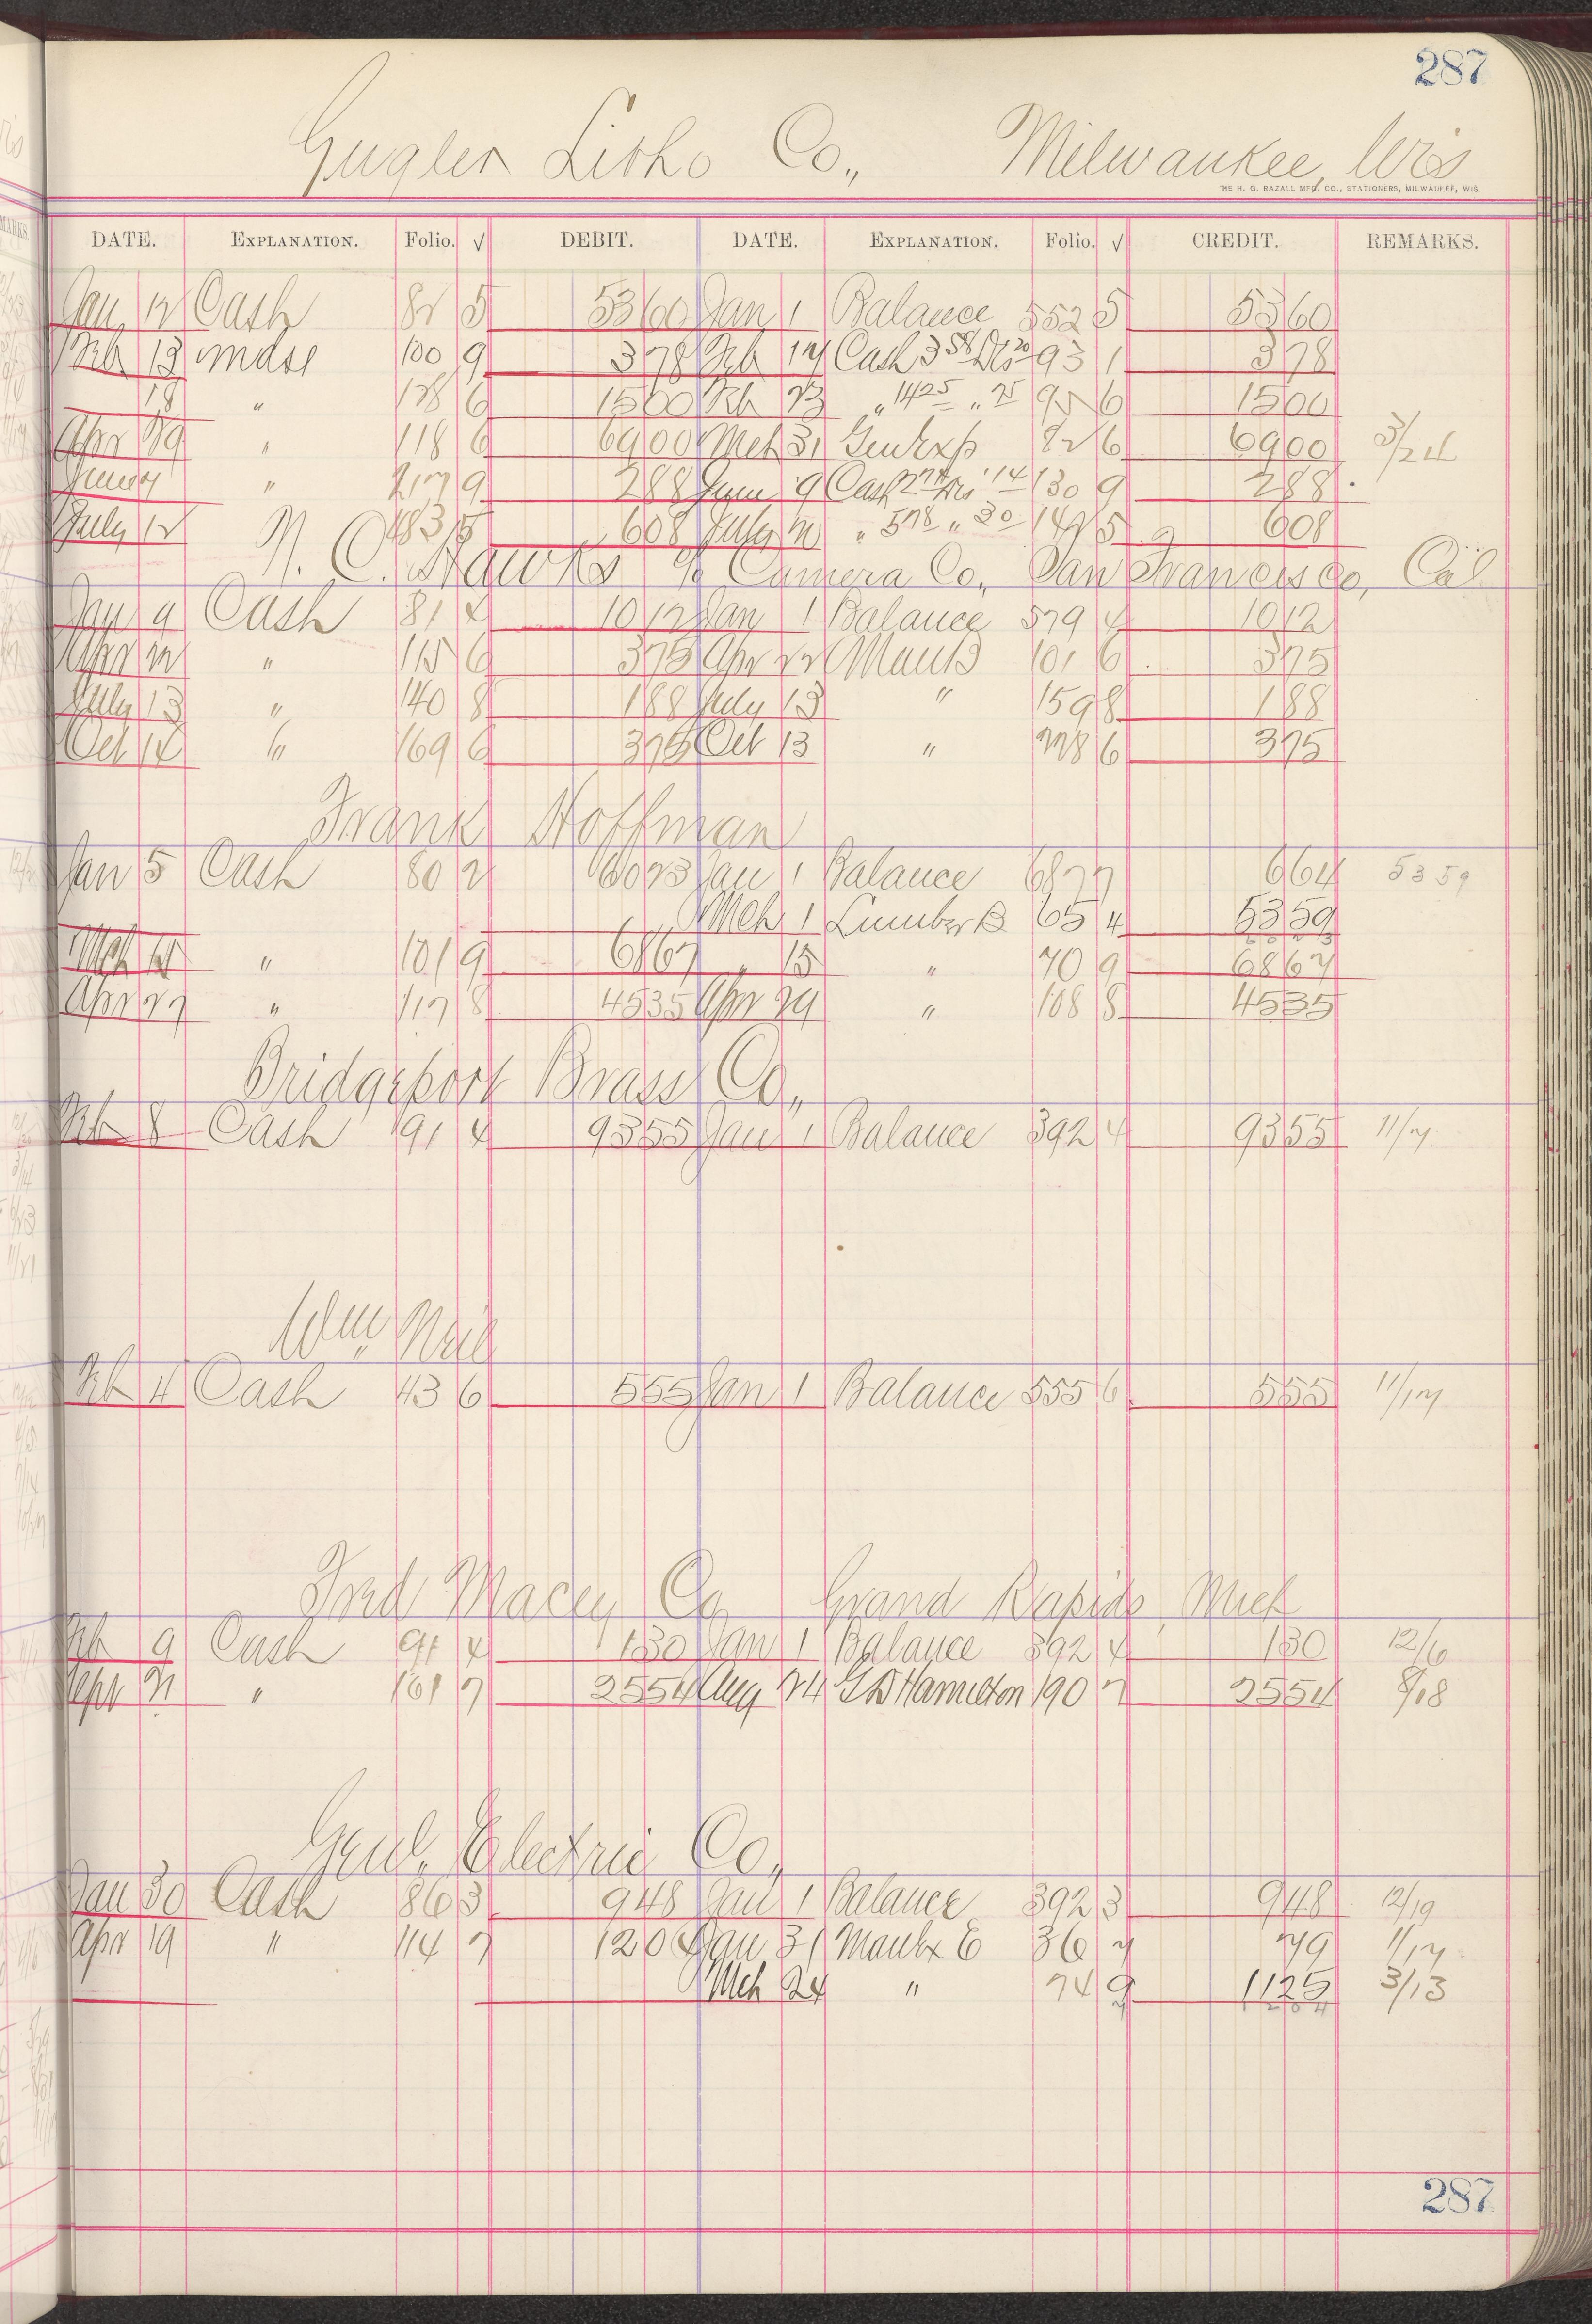 287
Gugler Litho Co., Milwaukee, Wis
THE H. G. RAZALL MFG. CO., STATIONERS, MILWAUKEE, WIS.
DATE. EXPLANATION. Folio. √ DEBIT. DATE. EXPLANATION. Folio. √ CREDIT. REMARKS.
Jan 12 Cash 82 5 5360 Jan 1 Balance 552 5 5360
Feb 13 Mdse 100 9 378 Feb 17 Cash 3 58 Dis 20 93 1 378
18 " 128 6 1500 Feb 23 " 14 25 " 75 95 6 1500
Apr 19 " 118 6 6900 Mch 31 Genl Exp 82 6 6900 3/24
June 7 " 217 9 288 June 9 Cash 2 74 Dis 14 130 9 288
July 12 183 5 608 July 20 " 578 " 30 142 5 608
N. C. Hawks % Camera Co., San Francisco, Cal
Jan 9 Cash 81 4 1012 Jan 1 Balance 579 4 1012
Apr 22 " 115 6 375 Apr 22 Manf B 101 6 375
July 13 " 140 8 188 July 13 " 159 8 188
Oct 14 " 169 6 375 Oct 13 " 228 6 375
Frank Hoffman
Jan 5 Cash 80 2 6023 Jan 1 Balance 687 7 664 5359
Mch 1 Lumber B 65 4 5359
6023
Mch 4 " 101 9 6867 " 15 " 70 9 6867
Apr 27 " 117 8 4535 Apr 29 " 108 8 4535
Bridgeport Brass Co.,
Feb 8 Cash 91 4 9355 Jan 1 Balance 392 4 9355 11/7
Wm. Neil
Feb 4 Cash 43 6 555 Jan 1 Balance 555 6 555 11/17
Fred Macey Co Grand Rapids, Mich
Feb 9 Cash 91 4 130 Jan 1 Balance 392 4 130 12/6
Sept 21 " 161 7 2554 Aug 24 G D Hamilton 190 7 2554 8/18
Genl. Electric Co.,
Jan 30 Cash 86 3 948 Jan 1 Balance 392 3 948 12/19
Apr 19 " 114 7 1204 Jan 31 Manfx E 36 7 79 1/17
Mch 24 " 74 9 1125 3/13
7 1204
287